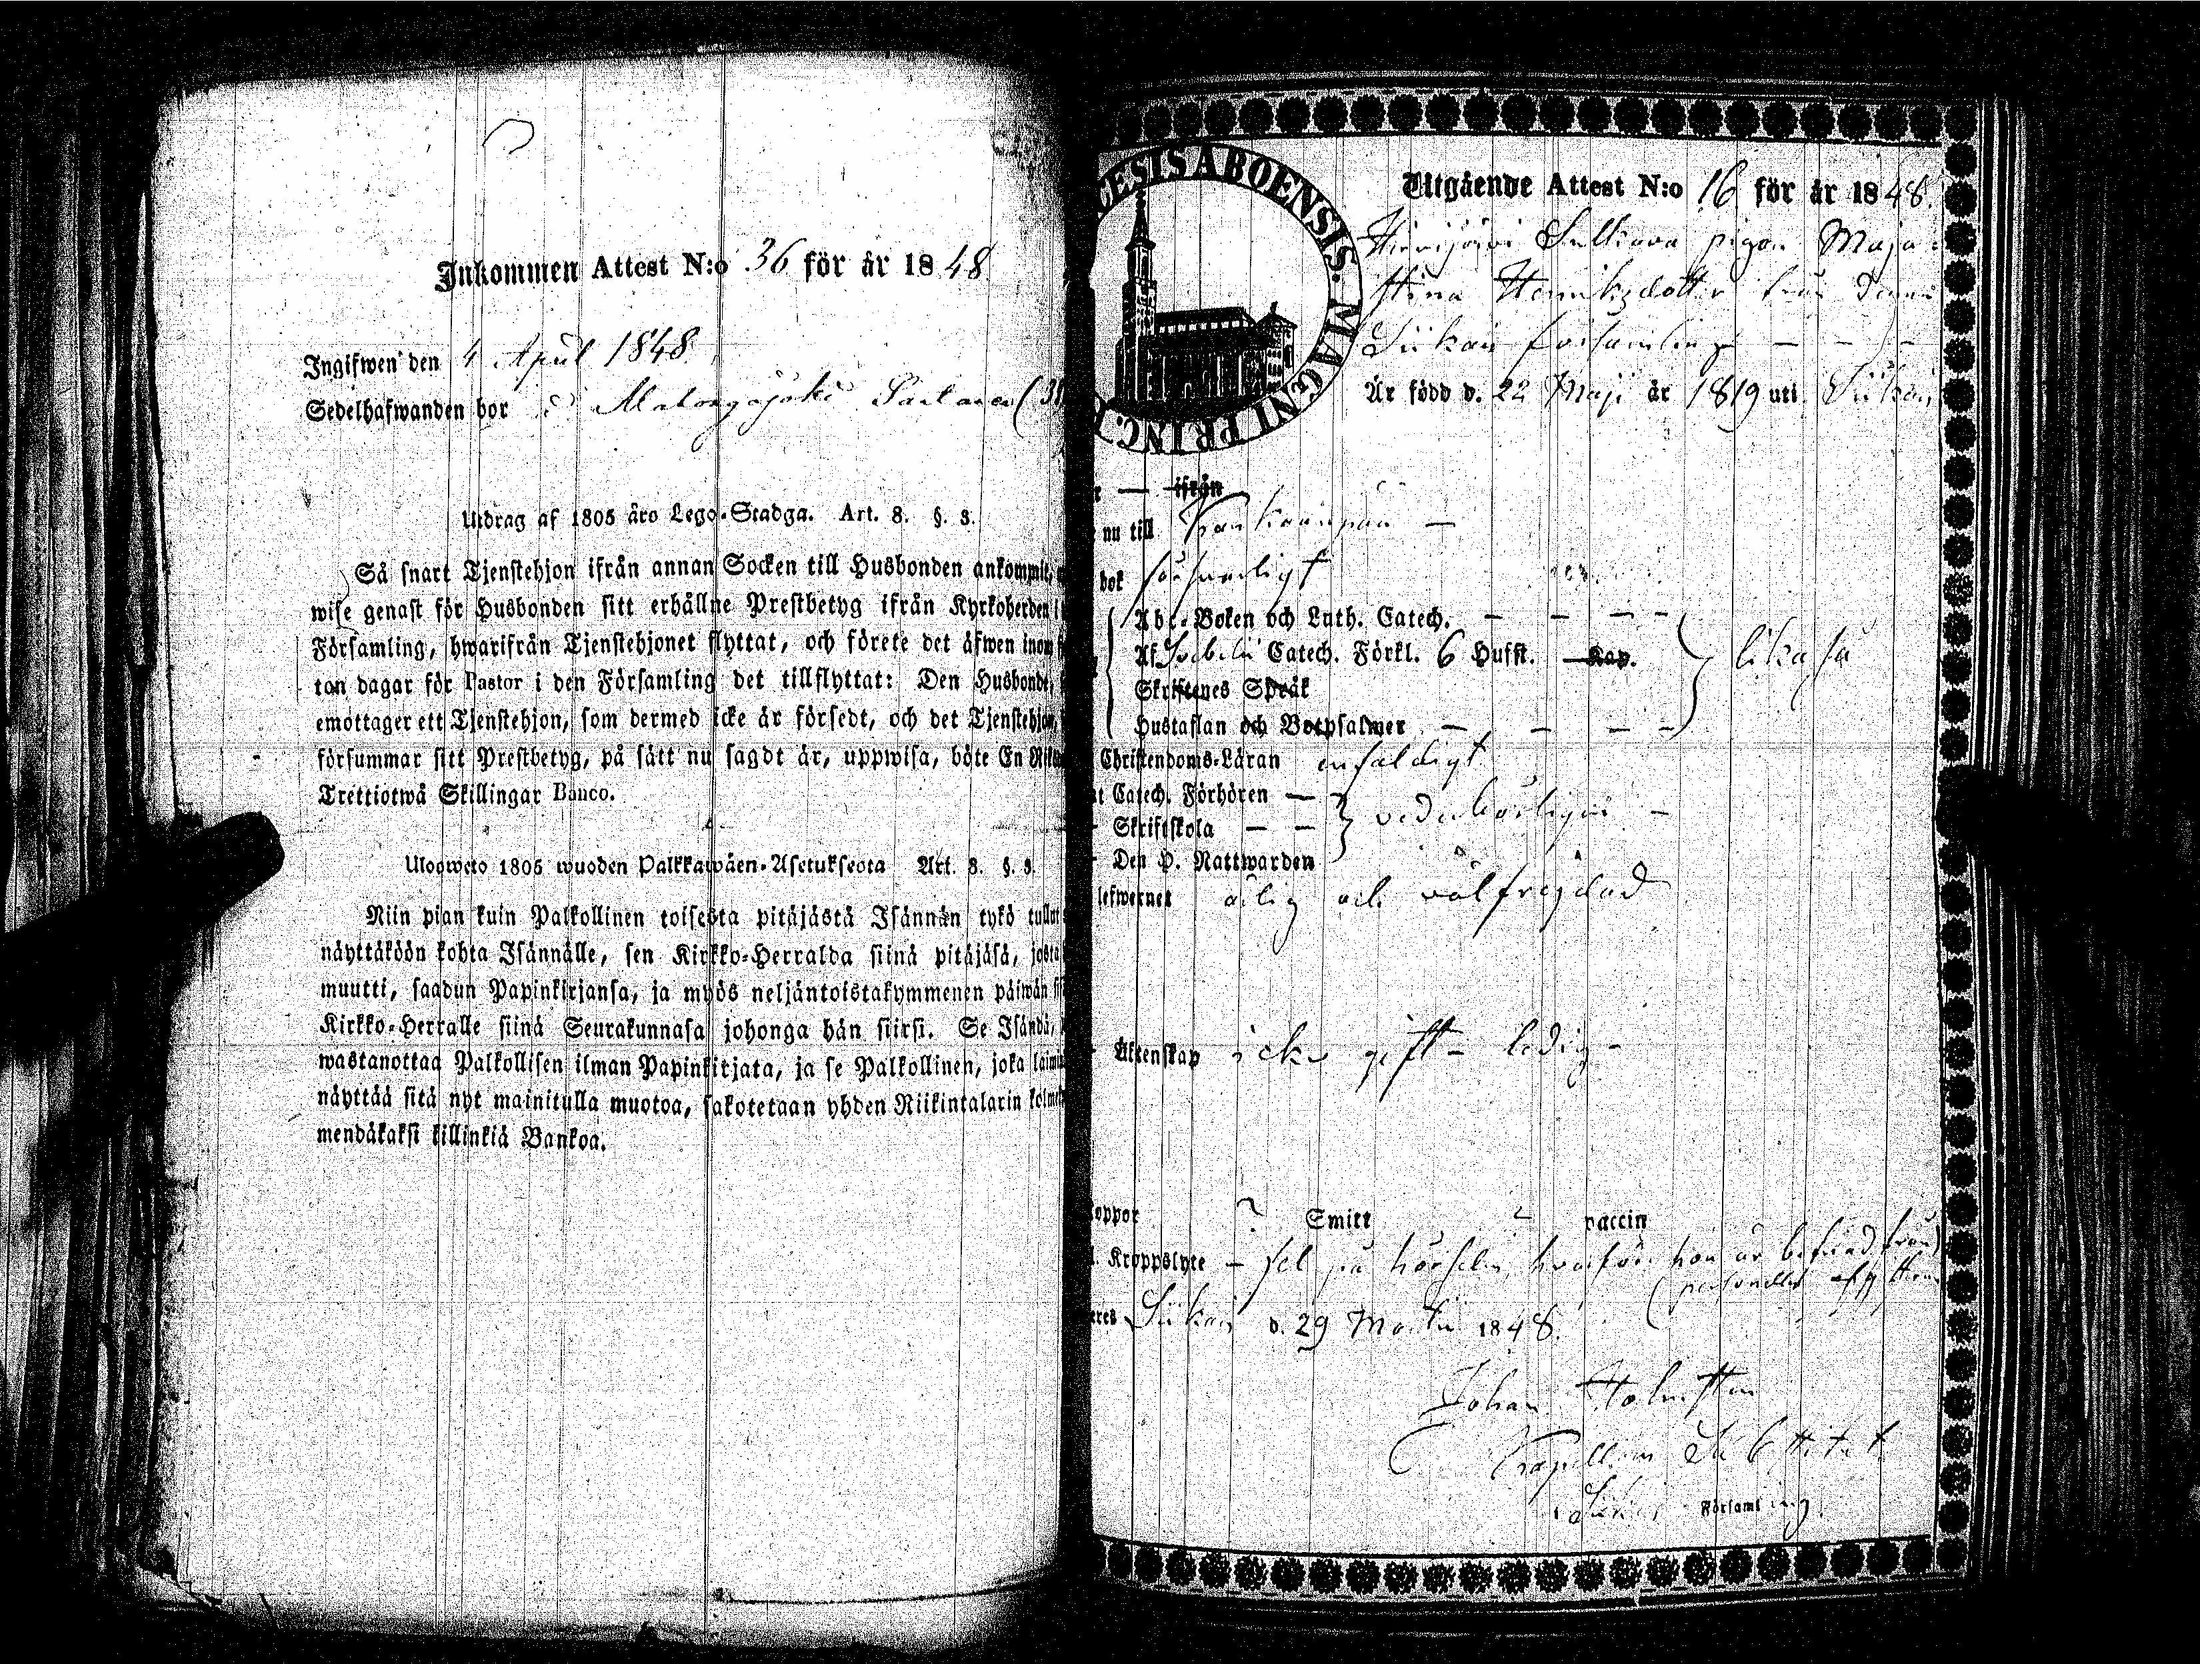 Inkommen Attest N:o 36 för år 1848
Ingifwen den 4 April 1848.
Sedelhafwanden bor i
Utdrag af 1805 års Lego-Stadga. Art. 8. §. 3.
Så snart Tjenstehjon ifrån annan Socken till Husbonden ankommit,
wise genast för Husbonden sitt erhållne Prestbetyg ifrån Kyrkoherden i
Församling, hwarifrån Tjenstehjonet flyttat, och förete det äfwen inom
ton dagar för Pastor i den Församling det tillflyttat: Den Husbonde,
emottager ett Tjenstehjon, som dermed icke är försedt, och det Tjenstehjon,
försummar sitt Prestbetyg, på sätt nu sagdt är, uppwisa, böte En
Trettiotwå Skillingar Banco.
Ulosweto 1805 wuoden Palkkawäen-Asetuksesta Art. 8. §. 3.
Niin pian kuin Palkollinen toisesta pitäjästä Isännän tykö tullut
näyttäköön kohta Isännälle, sen Kirkko-Herralda siinä pitäjäsä, josta
muutti, saadun Papinkirjansa, ja myös neljäntoistakymmenen päiwän
Kirkko-Herralle siinä Seurakunnasa johonga hän siirsi. Se Isändä,
wastanottaa Palkollisen ilman Papinkirjata, ja se Palkollinen, joka
näyttää sitä nyt mainitulla muotoa, sakotetaan yhden Riikintalarin
mendäkaksi killinkiä Bankoa.
CESIS ABOENSIS. MAGNI PRINC.
Utgående Attest N:o 16 för år 1848.
pigan Maja
Stina Henriksdotter från denna
församling
Är född d. 22 Maji år 1819 uti
ifrån
nu till Kankaanpää
bok försvarligt
Abc-Boken och Luth. Catech.
Af Svebelii Catech. Förkl. 6 Hufst. Kap. likaså
Skriftenes Språk
Hustaflan och Botpsalmer
Christendoms-Läran enfaldigt
Catech. Förhören
Skriftskola vederbörligen
Den H. Nattwarden
lefwernet ärlig och välfrejdad
Äktenskap icke gift - ledig
koppor ? Smitt vaccin
Kroppslyte - fel på hörseln, hvarföre hon är befriad från
personella
d. 29 Martii 1848.
Johan
Kapellans Substitut
Församling